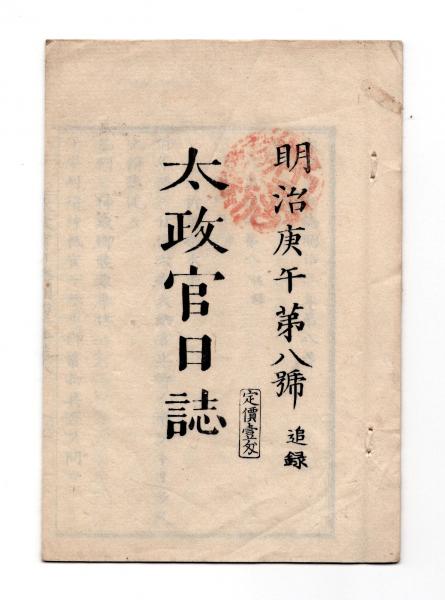 明治庚午第八號 追録
太政官日誌
定價壹匁